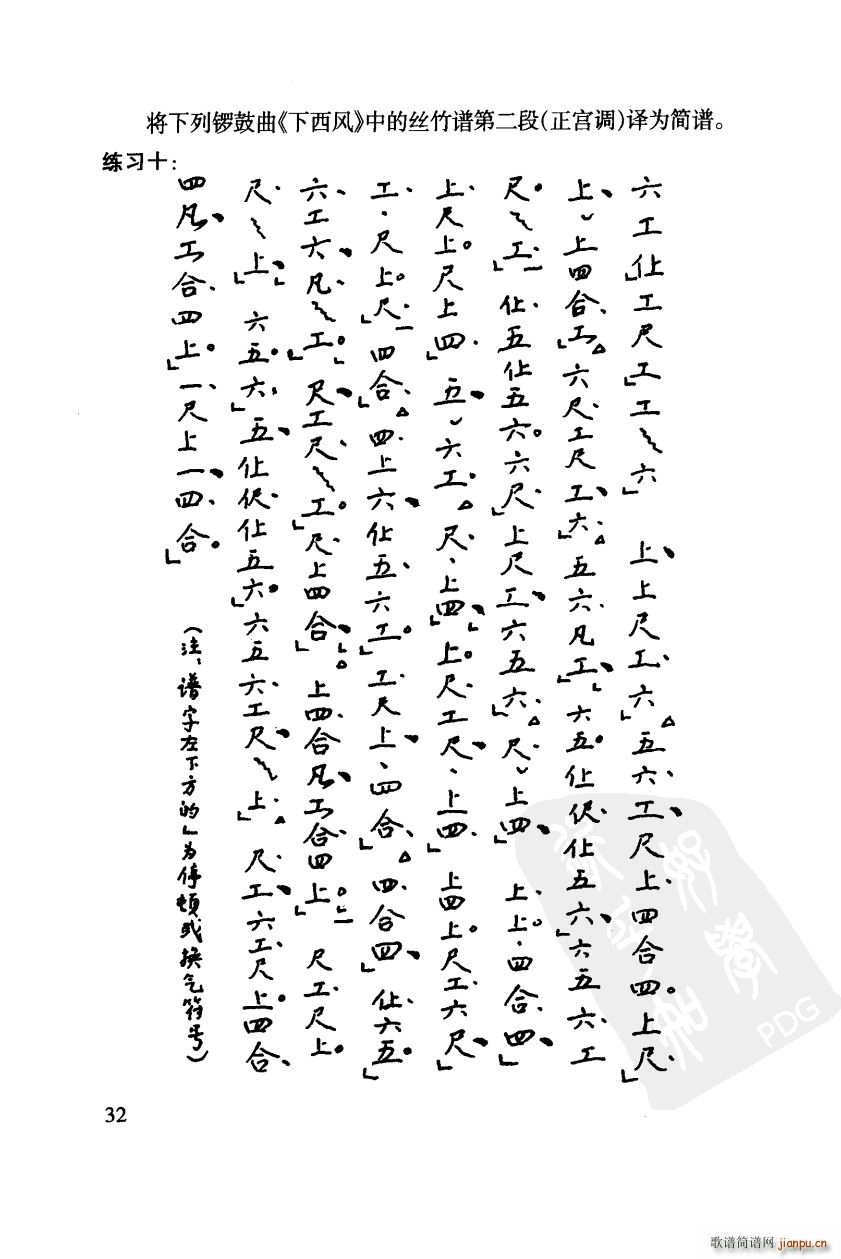 将下列锣鼓曲《下西风》中的丝竹谱第二段(正宫调)译为简谱。
练习十:
六工仩工尺工工六 上上尺工六五六工尺上四合四上尺
上上四合工六尺工尺工六五六凡工六五仩伬仩五六六五六工
尺工仩五仩五六六尺上尺工六五六尺上四上上四合四
上尺上尺上四五六工尺上四上尺工尺上四上四上尺工六尺
工尺上尺四合四上六仩五六工工尺上四合四合四仩六五
六工六凡工尺工尺工尺上四合上四合凡工合四上尺工尺上
尺上六五六五仩伬仩五六六五六工尺上尺工六工尺上四合
四凡工合四上一尺上一四合
(注:谱字左下方的」为停顿或换气符号)
32
PDG
歌谱简谱网
jianpu.cn